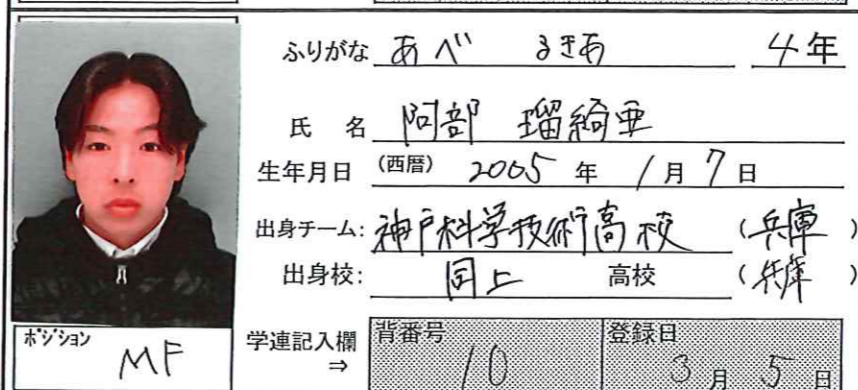 ふりがな あべ るきあ 4年
氏名 阿部 瑠綺亜
生年月日 (西暦) 2005年 1月7日
出身チーム: 神戸科学技術高校 (兵庫)
出身校: 同上 高校 (兵庫)
ポジション MF
学連記入欄 ⇒
背番号 10
登録日 3月5日